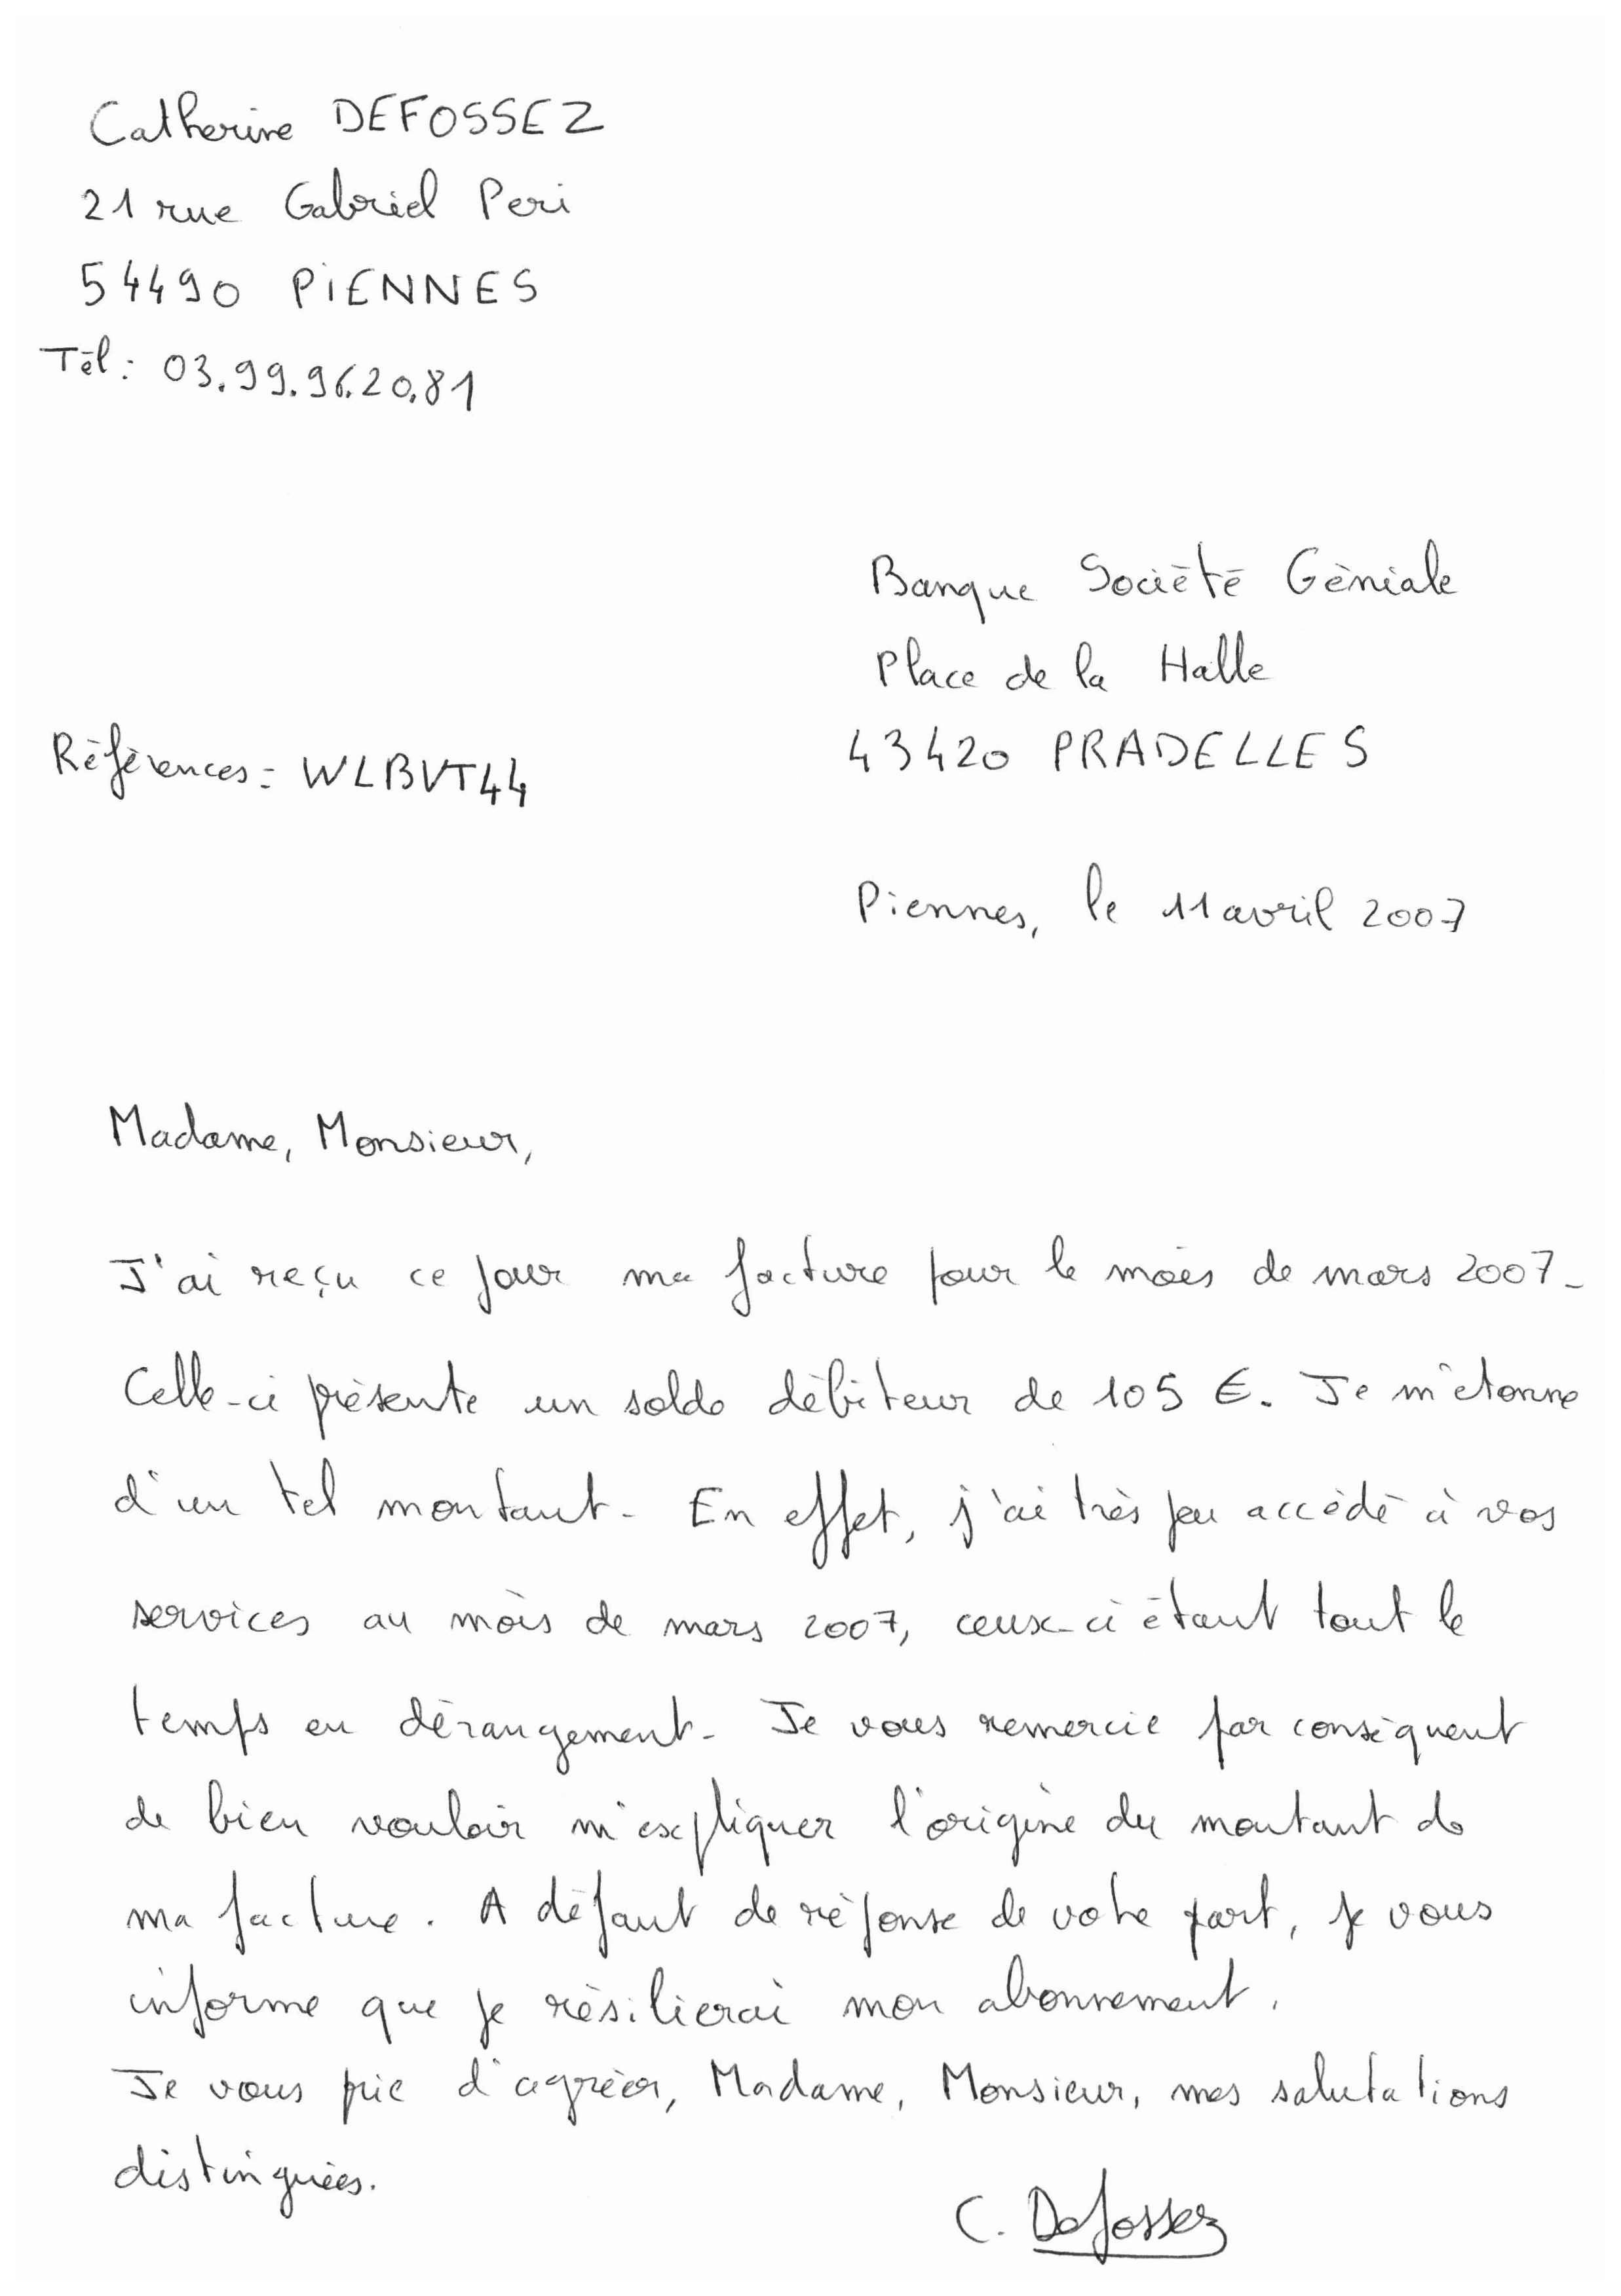 Catherine DEFOSSEZ
21 rue Gabriel Peri
54490 PIENNES
Tél : 03.99.96.20.81
Banque Société Géniale
Place de la Halle
43420 PRADELLES
Références : WLBVT44
Piennes, le 11 avril 2007
Madame, Monsieur,
J'ai reçu ce jour ma facture pour le mois de mars 2007.
Celle-ci présente un solde débiteur de 105 €. Je m'étonne
d'un tel montant. En effet, j'ai très peu accédé à vos
services au mois de mars 2007, ceux-ci étant tout le
temps en dérangement. Je vous remercie par conséquent
de bien vouloir m'expliquer l'origine du montant de
ma facture. A défaut de réponse de votre part, je vous
informe que je résilierai mon abonnement.
Je vous prie d'agréer, Madame, Monsieur, mes salutations
distinguées.
C. Defossez